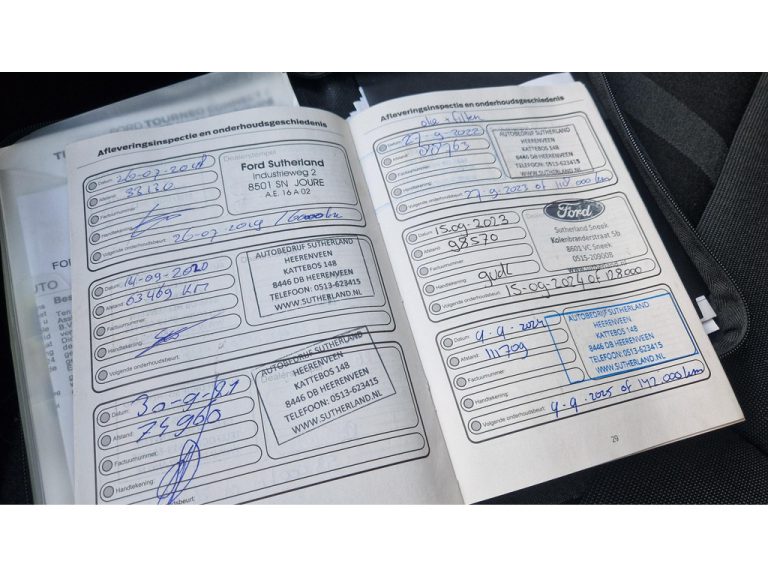 FORD TOURNEO
Afleveringsinspectie en onderhoudsgeschiedenis
Datum: 26-07-2018
Afstand: 38130
Factuurnummer:
Handtekening:
Volgende onderhoudsbeurt: 26-07-2019 / 60000km
Ford Sutherland
Industrieweg 2
8501 SN JOURE
A.E. 16 A 02
Datum: 14-09-2020
Afstand: 63469 KM
Factuurnummer:
Handtekening:
Volgende onderhoudsbeurt:
AUTOBEDRIJF SUTHERLAND
HEERENVEEN
KATTEBOS 148
8446 DB HEERENVEEN
TELEFOON: 0513-623415
WWW.SUTHERLAND.NL
Datum: 30-9-21
Afstand: 74960
Factuurnummer:
Handtekening:
AUTOBEDRIJF SUTHERLAND
HEERENVEEN
KATTEBOS 148
8446 DB HEERENVEEN
TELEFOON: 0513-623415
WWW.SUTHERLAND.NL
Afleveringsinspectie en onderhoudsgeschiedenis
olie + filter
Datum: 27-9-2022
Afstand:
Factuurnummer:
Handtekening:
Volgende onderhoudsbeurt: 27-9-2023 of
AUTOBEDRIJF SUTHERLAND
HEERENVEEN
KATTEBOS 148
8446 DB HEERENVEEN
TELEFOON: 0513-623415
WWW.SUTHERLAND.NL
Datum: 15-09-2023
Afstand: 98570
Factuurnummer:
Handtekening:
Volgende onderhoudsbeurt: 15-09-2024 of 128000
Ford
Sutherland Sneek
Kolenbranderstraat 5b
8601 VC Sneek
0515-209008
www.sutherland.nl
Datum: 9-9-2024
Afstand: 111709
Factuurnummer:
Handtekening:
Volgende onderhoudsbeurt: 9-9-2025 of 142.000 km
AUTOBEDRIJF SUTHERLAND
HEERENVEEN
KATTEBOS 148
8446 DB HEERENVEEN
TELEFOON: 0513-623415
WWW.SUTHERLAND.NL
29